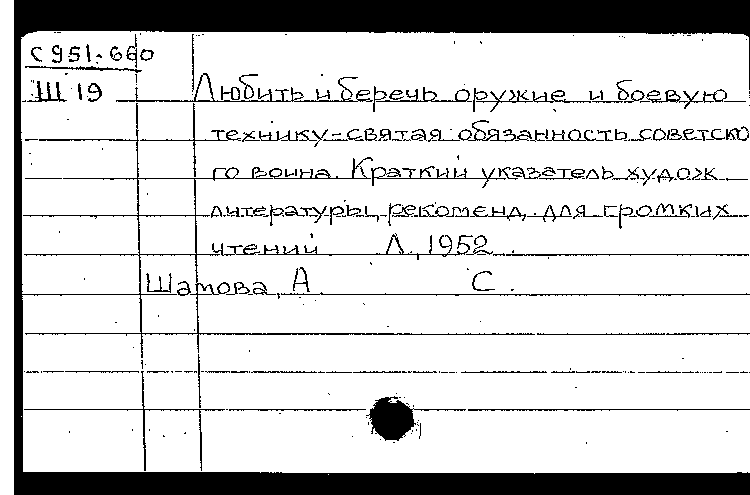 С 951.660
Ш 19 Любить и беречь оружие и боевую
технику-святая обязанность советско
го воина. Краткий указатель худож.
литературы, рекоменд. для громких
чтений Л., 1952.
Шатова, А. С.